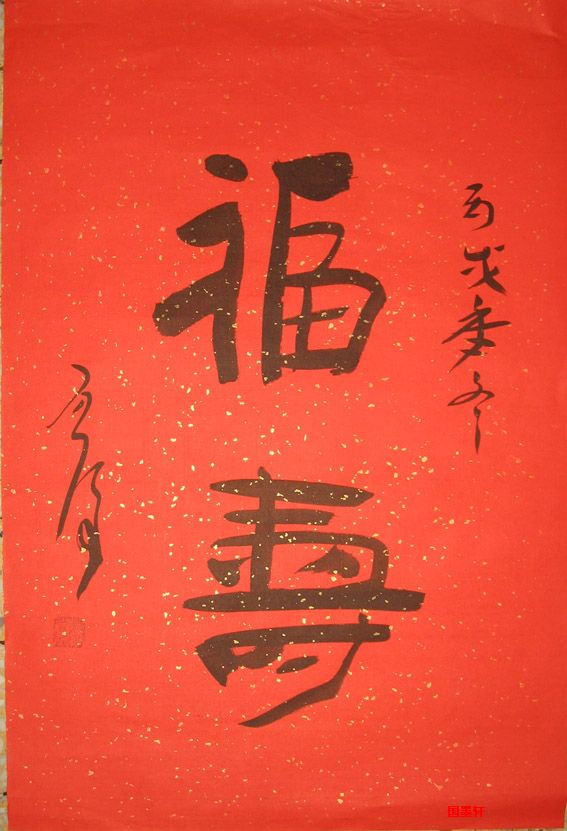 丙戌季冬
福壽
国墨轩